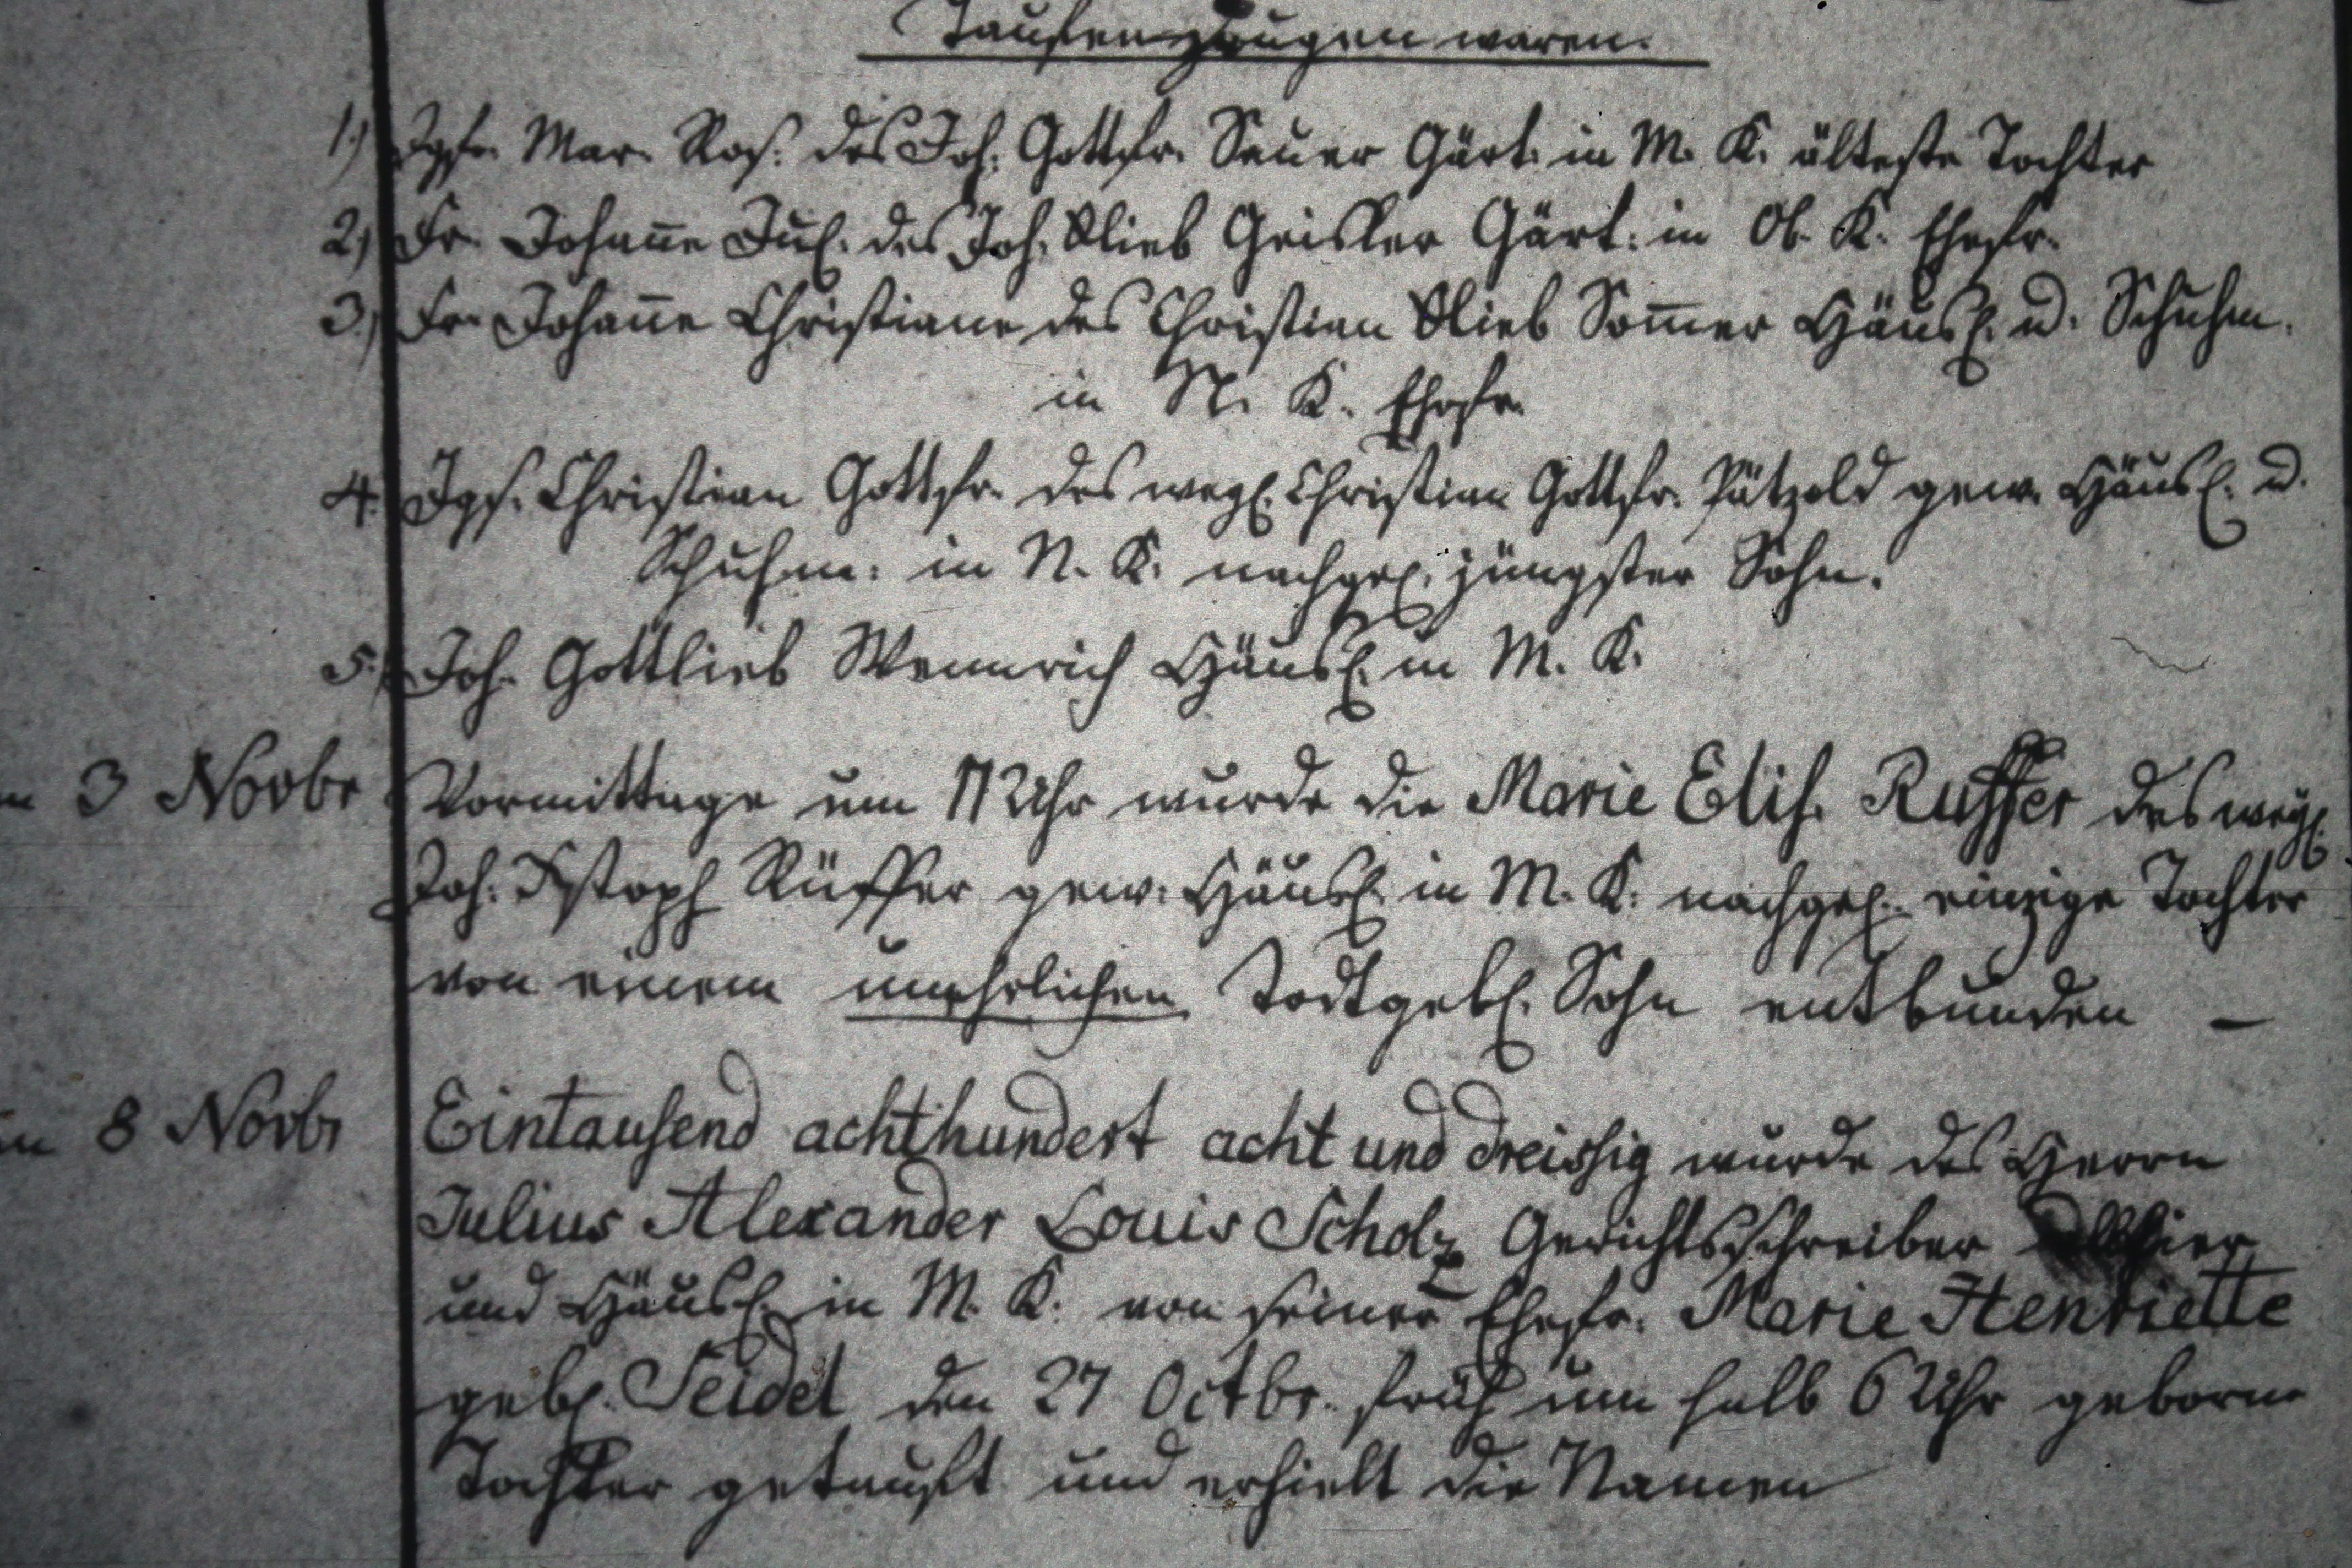 Taufenzeugen waren.
1.) Jgfr. Mar. Ros. des Joh. Gottfr. Seuer Gärt. in M. K. älteste Tochter
2.) Fr. Johan̄e Jul. des Joh. Glieb Geisler Gärt: in Ob. K. Ehefr.
3.) Fr. Johan̄e Christiane des Christian Glieb Som̄er Häusl. u. Schuhm.
in N. K. Ehefr.
4. Jgs. Christian Gottfr. des wegl. Christian Gottfr. Pätzold gew. Häusl. u.
Schuhm: in N. K. nachgel. jüngster Sohn.
5.) Joh. Gottlieb Wennrich Häusl. in M. K.
3 Novbr Vormittags um 11 Uhr wurde die Marie Elis. Ruffer des wegl.
Joh. Xstoph Rüffer gew. Häusl. in M. K. nachgel. einzige Tochter
von einem unehelichen Todtgebl. Sohn entbunden —
8 Novbr Eintausend achthundert acht und dreissig wurde des Herrn
Julius Alexander Louis Scholz Gerichtsschreiber
und Häusl. in M. K. von seiner Ehefr. Marie Henriette
gebl. Seidel den 27 Octbr. früh um halb 6 Uhr geborne
Tochter getauft und erhielt die Namen